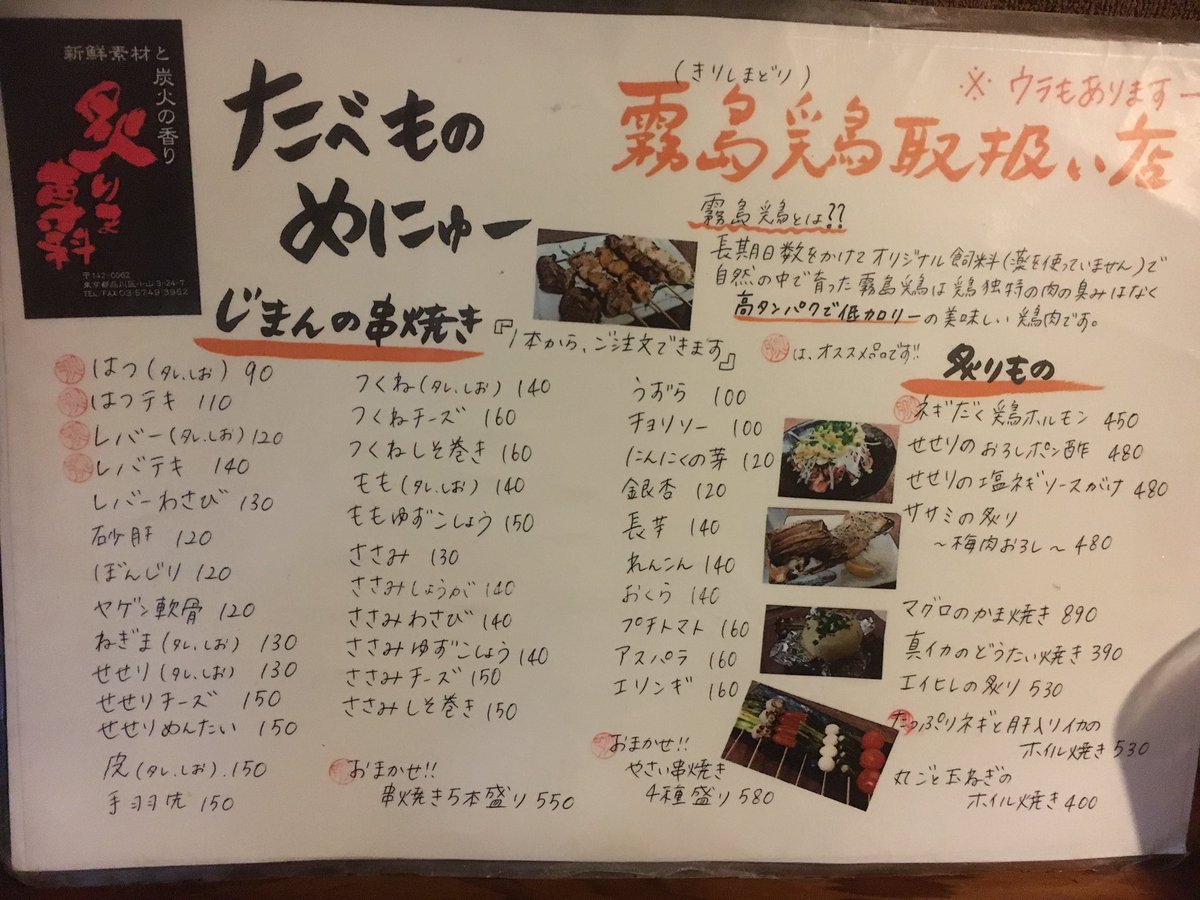 新鮮素材と
炭火の香り
炙りま専科
〒142-0062
東京都品川区小山3-24-7
TEL/FAX 03-5749-3962
たべもの
めにゅー
(きりしまどり)
※ウラもあります
霧島鶏取扱い店
霧島鶏とは??
長期日数をかけてオリジナル飼料(薬を使っていません)で
自然の中で育った霧島鶏は鶏独特の肉の臭みはなく
高タンパクで低カロリーの美味しい鶏肉です。
じまんの串焼き
『1本から、ご注文できます』
は、オススメ品です!!
はつ(タレ、しお) 90
はつテキ 110
レバー(タレ、しお) 120
レバテキ 140
レバーわさび 130
砂肝 120
ぼんじり 120
ヤゲン軟骨 120
ねぎま(タレ、しお) 130
せせり(タレ、しお) 130
せせりチーズ 150
せせりめんたい 150
虎(タレ、しお) 150
手羽先 150
つくね(タレ、しお) 140
つくねチーズ 160
つくねしそ巻き 160
もも(タレ、しお) 140
ももゆずこしょう 150
ささみ 130
ささみしょうが 140
ささみわさび 140
ささみゆずこしょう 140
ささみチーズ 150
ささみしそ巻き 150
おまかせ!!
串焼き5本盛り 550
うずら 100
チョリソー 100
にんにくの芽 120
銀杏 120
長芋 140
れんこん 140
おくら 140
プチトマト 160
アスパラ 160
エリンギ 160
おまかせ!!
やさい串焼き
4種盛り 580
炙りもの
ネギだく鶏ホルモン 450
せせりのおろしポン酢 480
せせりの塩ネギソースがけ 480
ササミの炙り
～梅肉おろし～ 480
マグロのかま焼き 890
真イカのどうたい焼き 390
エイヒレの炙り 530
たっぷりネギと肝入りイカの
ホイル焼き 530
丸ごと玉ねぎの
ホイル焼き 400